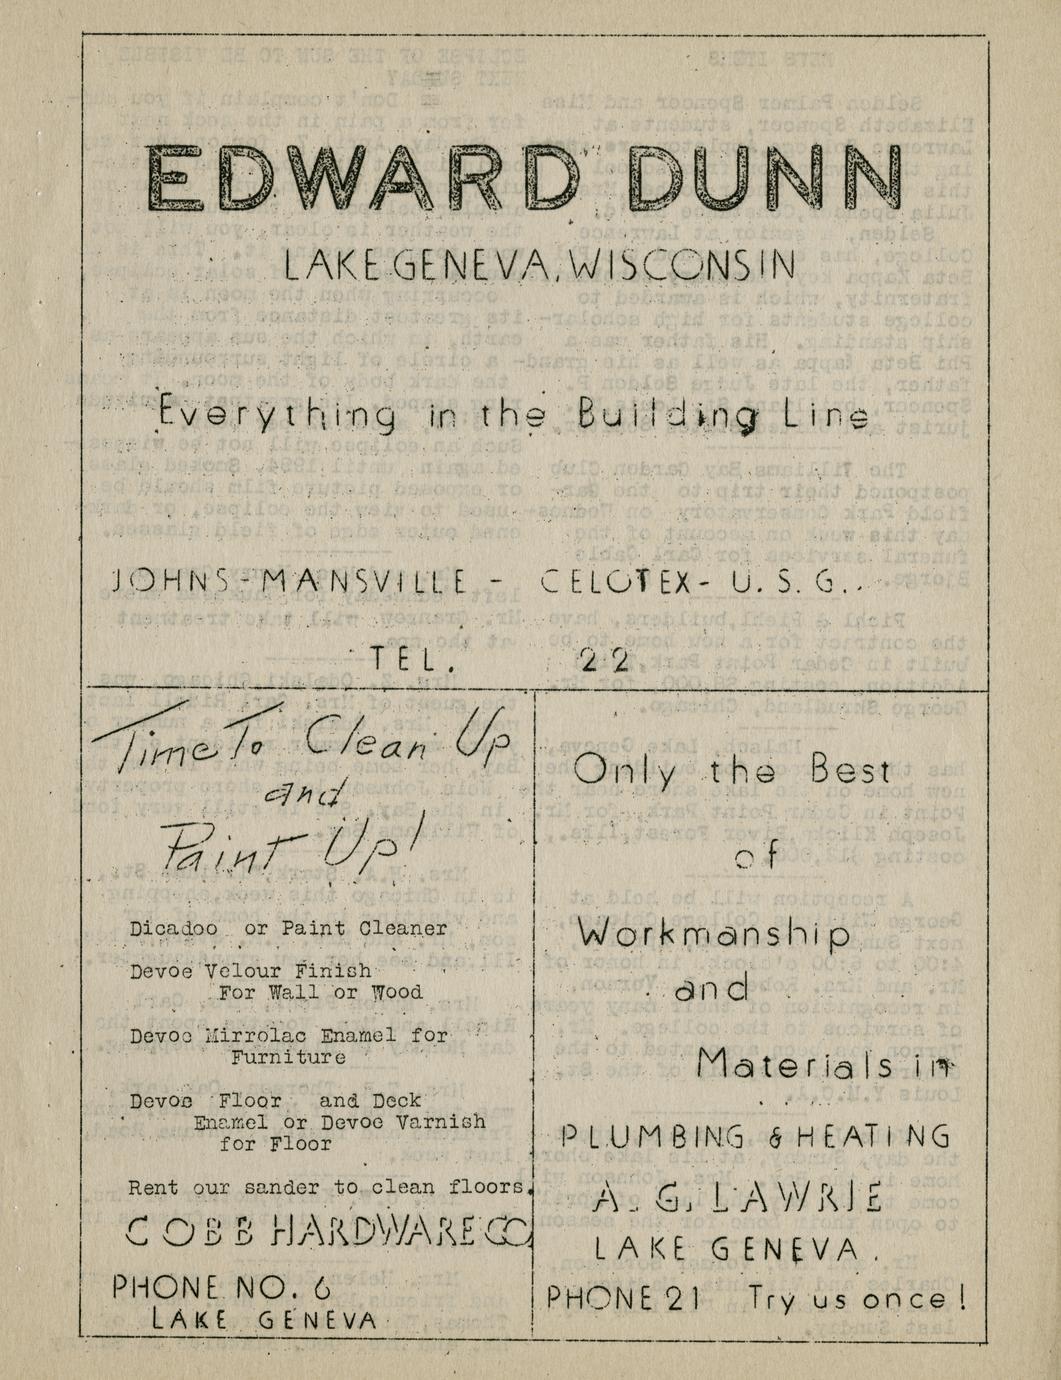 EDWARD DUNN
LAKE GENEVA, WISCONSIN
Everything in the Building Line
JOHNS-MANSVILLE - CELOTEX - U.S.G.
TEL. 22
Time To Clean Up
and
Paint Up!
Dicadoo or Paint Cleaner
Devoe Velour Finish
For Wall or Wood
Devoe Mirrolac Enamel for
Furniture
Devoe Floor and Deck
Enamel or Devoe Varnish
for Floor
Rent our sander to clean floors.
COBB HARDWARE CO
PHONE NO. 6
LAKE GENEVA
Only the Best
of
Workmanship
and
Materials in
PLUMBING & HEATING
A. G. LAWRIE
LAKE GENEVA.
PHONE 21 Try us once!